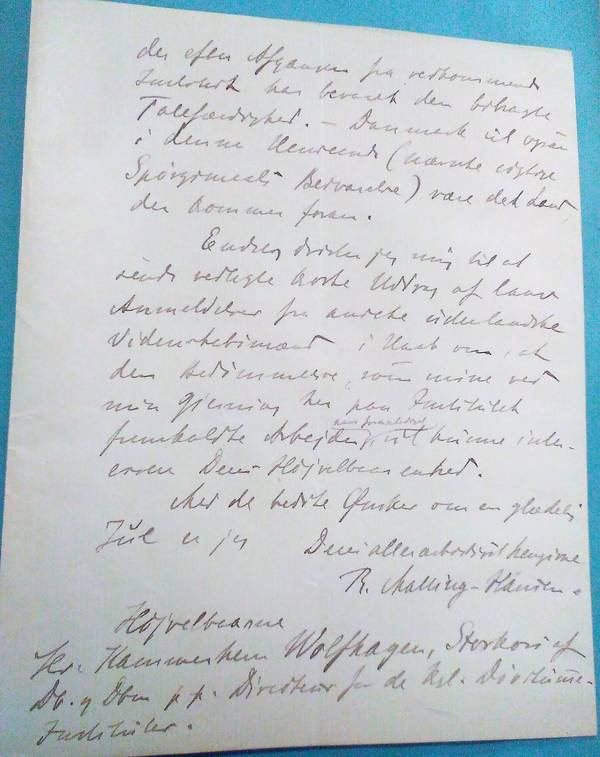 der efter Afgangen fra vedkommende
Institut har bevaret den bibragte
Talefærdighed. – Danmark vil ogsaa
i denne Henseende (nævnte vigtige
Spørgsmaals Besvarelse) være det Land,
der kommer foran.
Endnu drister jeg mig til at
sende vedlagte korte Uddrag af lange
Anmeldelser fra andre udenlandske
Videnskabsmænd i Haab om, at
den Bedømmelse, som mine ved
min Gjerning her paa Institutet
fremkaldte Arbejder vil kunne inte-
ressere Deres Højvelbaarenhed.
Med de bedste Ønsker om en glædelig
Jul er jeg Deres allerærbødigst hengivne
R. Malling-Hansen.
Højvelbaarne
Hr. Kammerherre Wolfhagen, Storkors af
Db. og Dbm p.p. Directeur for de Kgl. Døvstumme-
Instituter.